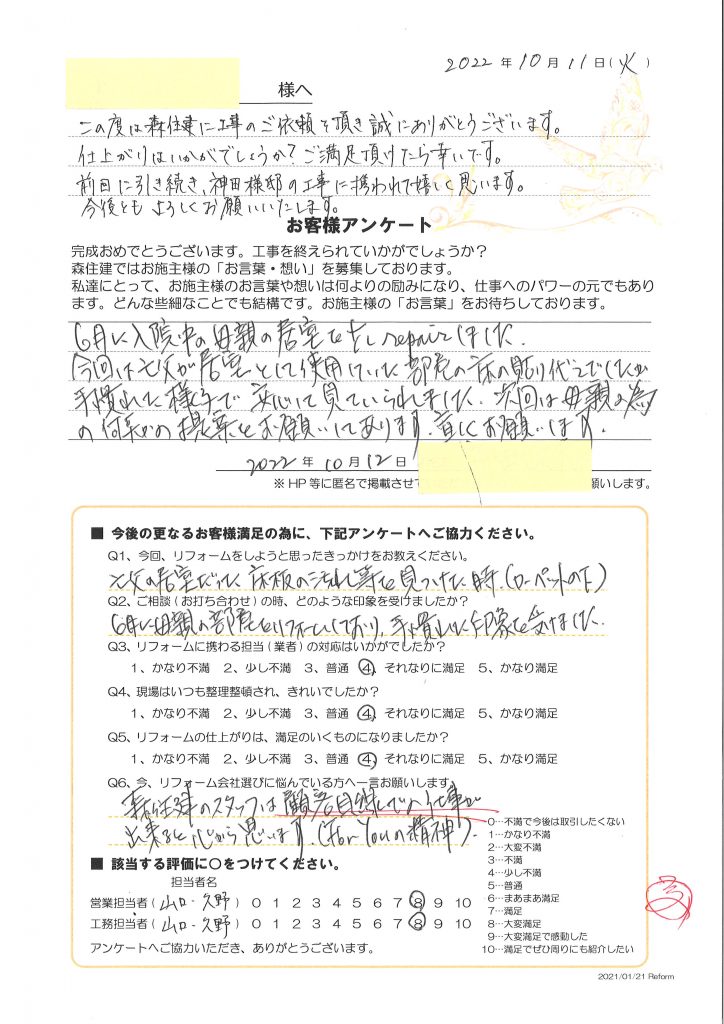 2022年10月11日(火)
様へ
この度は森住建に工事のご依頼を頂き誠にありがとうございます。
仕上がりはいかがでしょうか？ご満足頂けたら幸いです。
前回に引き続き、神田様邸の工事に携われて嬉しく思います。
今後ともよろしくお願いいたします。
お客様アンケート
完成おめでとうございます。工事を終えられていかがでしょうか？
森住建ではお施主様の「お言葉・想い」を募集しております。
私達にとって、お施主様のお言葉や想いは何よりの励みになり、仕事へのパワーの元でもあり
ます。どんな些細なことでも結構です。お施主様の「お言葉」をお待ちしております。
6月に入院中の母親の居室を repairしました。
今回は亡父が居室として使用していた部屋の床の貼り代えでしたが
手慣れた様子で安心して見ていられました。次回は母親の為
の何らかの提案をお願いしてあります。宜しくお願いします。
2022年10月12日
※HP等に匿名で掲載させて 願いします。
■ 今後の更なるお客様満足の為に、下記アンケートへご協力ください。
Q1、今回、リフォームをしようと思ったきっかけをお教えください。
亡父の居室だった床板の汚れ等を見つけた時。(カーペットの下)
Q2、ご相談(お打ち合わせ)の時、どのような印象を受けましたか？
6月に母親の部屋をリフォームしており、手慣れた印象を受けました。
Q3、リフォームに携わる担当(業者)の対応はいかがでしたか？
1、かなり不満 2、少し不満 3、普通 4、それなりに満足 5、かなり満足
Q4、現場はいつも整理整頓され、きれいでしたか？
1、かなり不満 2、少し不満 3、普通 4、それなりに満足 5、かなり満足
Q5、リフォームの仕上がりは、満足のいくものになりましたか？
1、かなり不満 2、少し不満 3、普通 4、それなりに満足 5、かなり満足
Q6、今、リフォーム会社選びに悩んでいる方へ一言お願いします。
森住建のスタッフは顧客目線での仕事が
出来ると心から思います。(For Youの精神)。
■ 該当する評価に○をつけてください。
担当者名
営業担当者(山口・久野) 0 1 2 3 4 5 6 7 8 9 10
工務担当者(山口・久野) 0 1 2 3 4 5 6 7 8 9 10
アンケートへご協力いただき、ありがとうございます。
0…不満で今後は取引したくない
1…かなり不満
2…大変不満
3…不満
4…少し不満
5…普通
6…まあまあ満足
7…満足
8…大変満足
9…大変満足で感動した
10…満足でぜひ周りにも紹介したい
2021/01/21 Reform